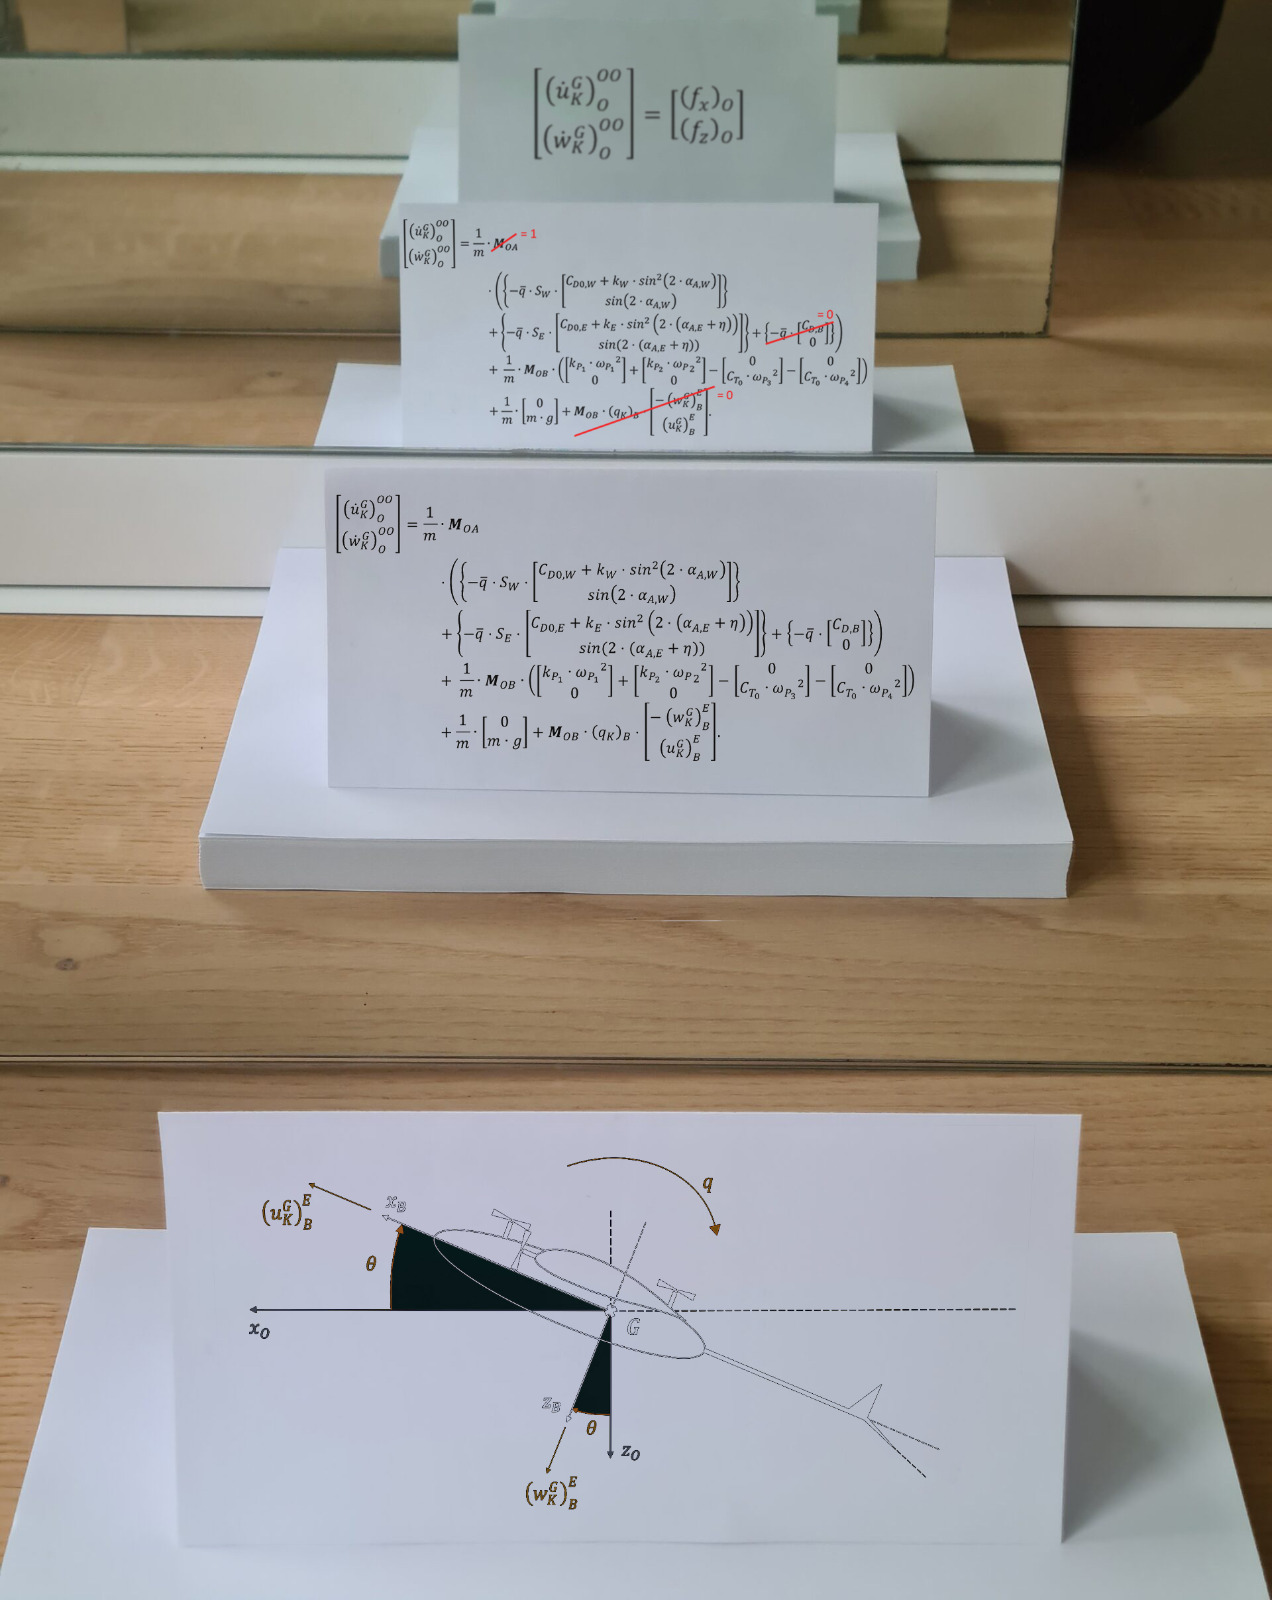 [(u̇_K^G)_O^OO
(ẇ_K^G)_O^OO] = [(f_x)_O
(f_z)_O]
[(u̇_K^G)_O^OO
(ẇ_K^G)_O^OO] = 1/m · M_OA = 1
· ({−q̄ · S_W · [C_D0,W + k_W · sin²(2 · α_A,W)
sin(2 · α_A,W)]}
+ {−q̄ · S_E · [C_D0,E + k_E · sin²(2 · (α_A,E + η))
sin(2 · (α_A,E + η))]} + {−q̄ · [C_D,B
0]}) = 0
+ 1/m · M_OB · ([k_P₁ · ω_P₁²
0] + [k_P₂ · ω_P₂²
0] − [0
C_T₀ · ω_P₃²] − [0
C_T₀ · ω_P₄²])
+ 1/m · [0
m · g] + M_OB · (q_K)_B · [−(w_K^G)_B^E
(u_K^G)_B^E]. = 0
[(u̇_K^G)_O^OO
(ẇ_K^G)_O^OO] = 1/m · M_OA
· ({−q̄ · S_W · [C_D0,W + k_W · sin²(2 · α_A,W)
sin(2 · α_A,W)]}
+ {−q̄ · S_E · [C_D0,E + k_E · sin²(2 · (α_A,E + η))
sin(2 · (α_A,E + η))]} + {−q̄ · [C_D,B
0]})
+ 1/m · M_OB · ([k_P₁ · ω_P₁²
0] + [k_P₂ · ω_P₂²
0] − [0
C_T₀ · ω_P₃²] − [0
C_T₀ · ω_P₄²])
+ 1/m · [0
m · g] + M_OB · (q_K)_B · [−(w_K^G)_B^E
(u_K^G)_B^E].
q
(u_K^G)_B^E
x_B
θ
x_O
G
z_B
θ
z_O
(w_K^G)_B^E